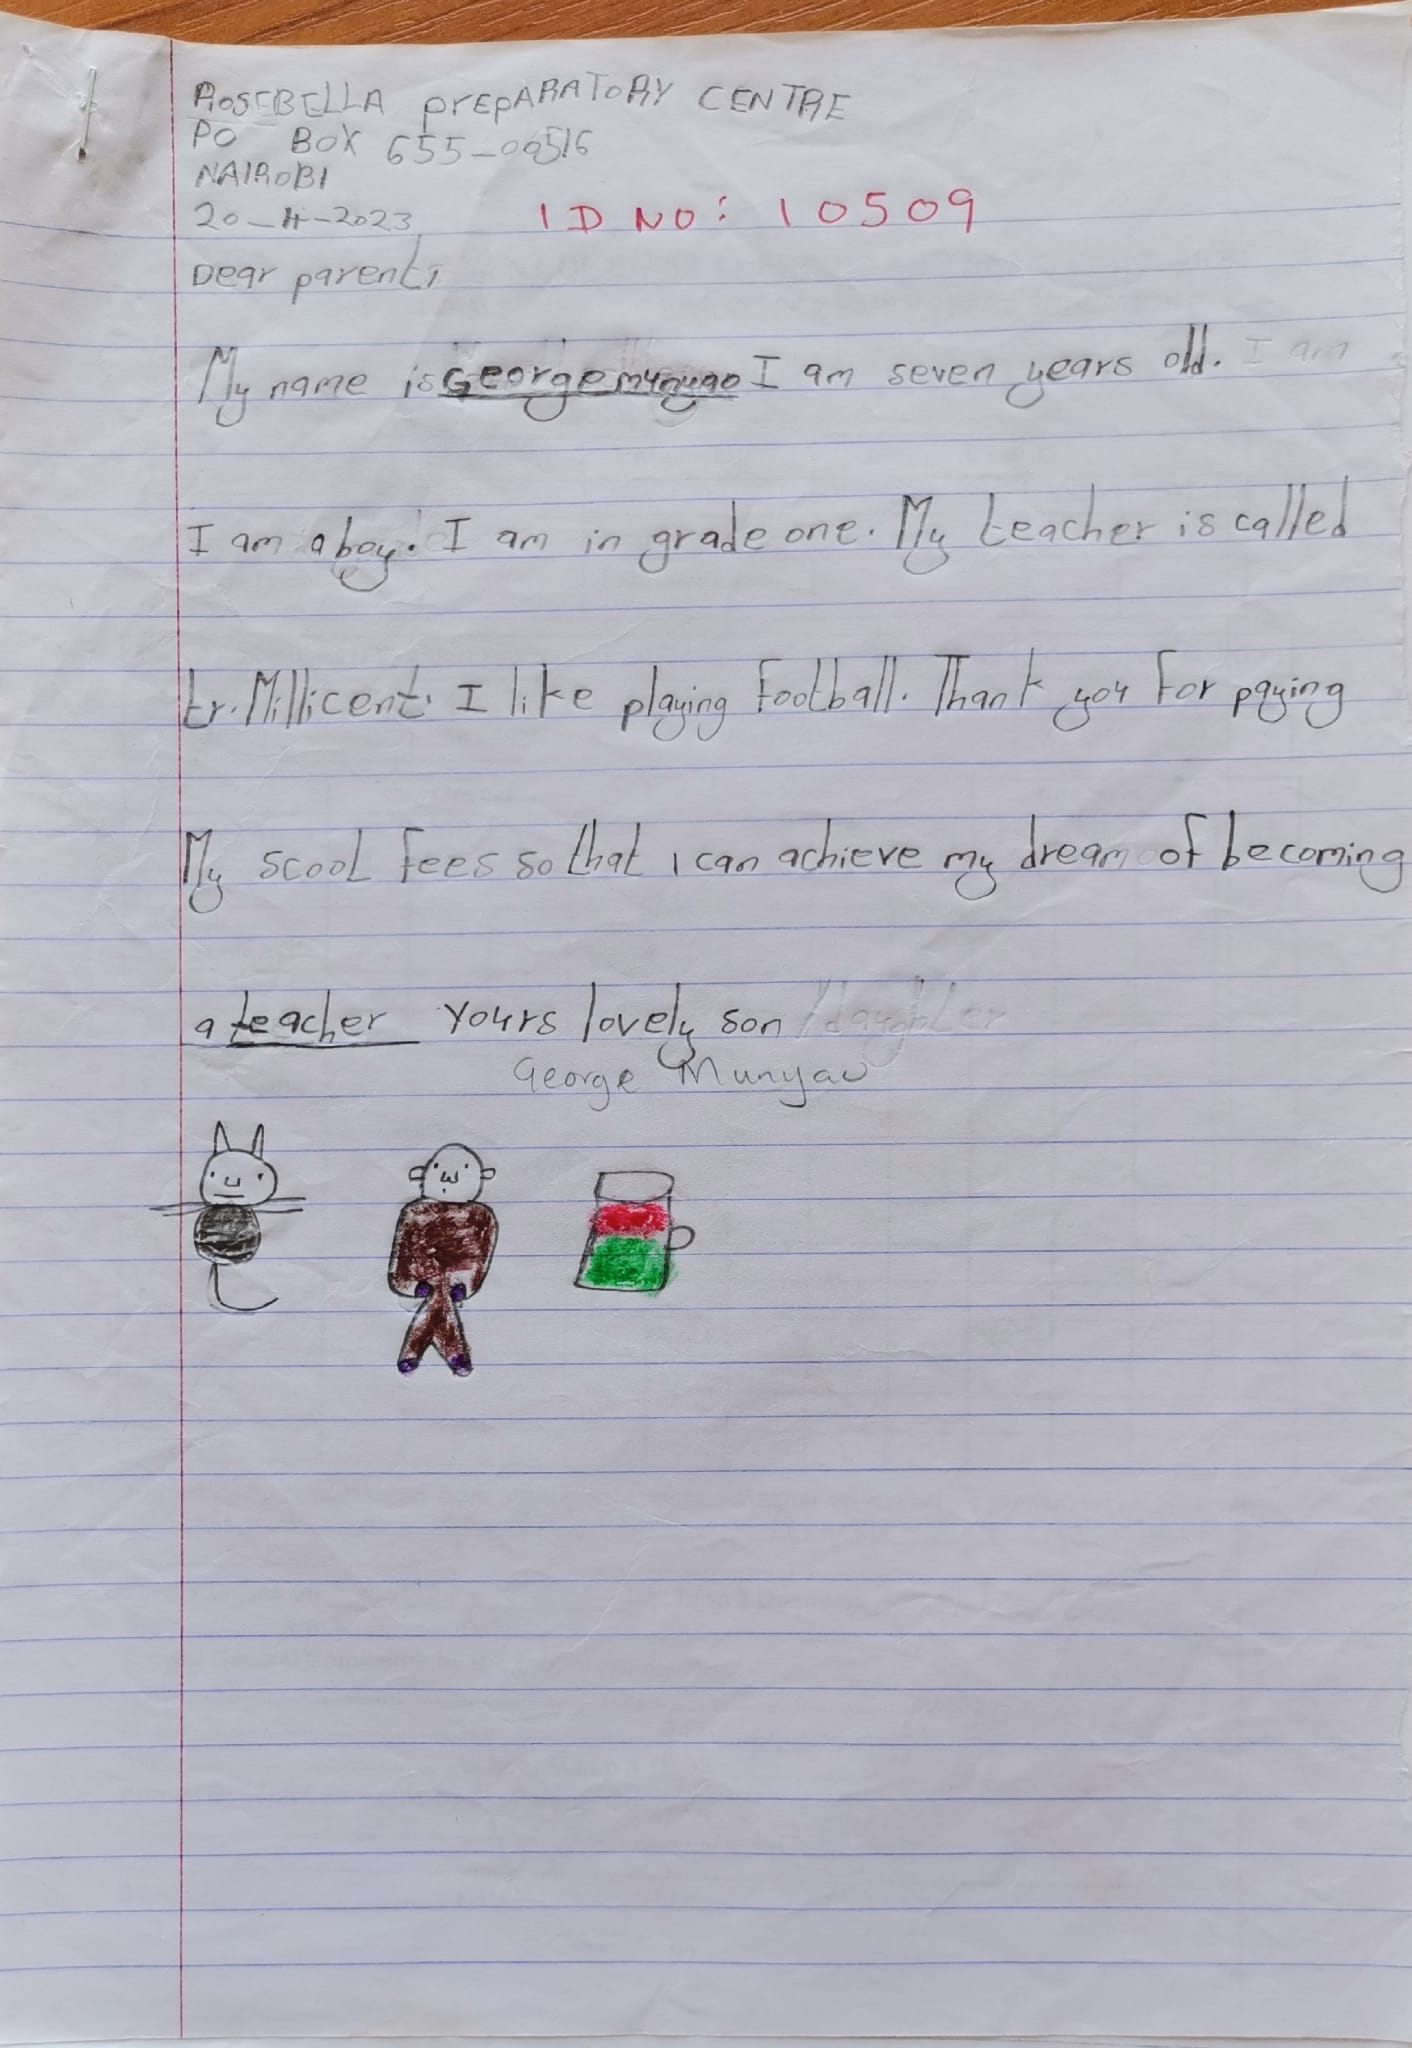 ROSEBELLA PREPARATORY CENTRE
PO BOX 655-00516
NAIROBI
20-4-2023 ID NO: 10509
Dear parents,
My name is George munyao I am seven years old. I am
I am a boy. I am in grade one. My teacher is called
tr. Millicent. I like playing football. Thank you for paying
My scool fees so that I can achieve my dream of becoming
a teacher yours lovely son /daughter
George Munyao